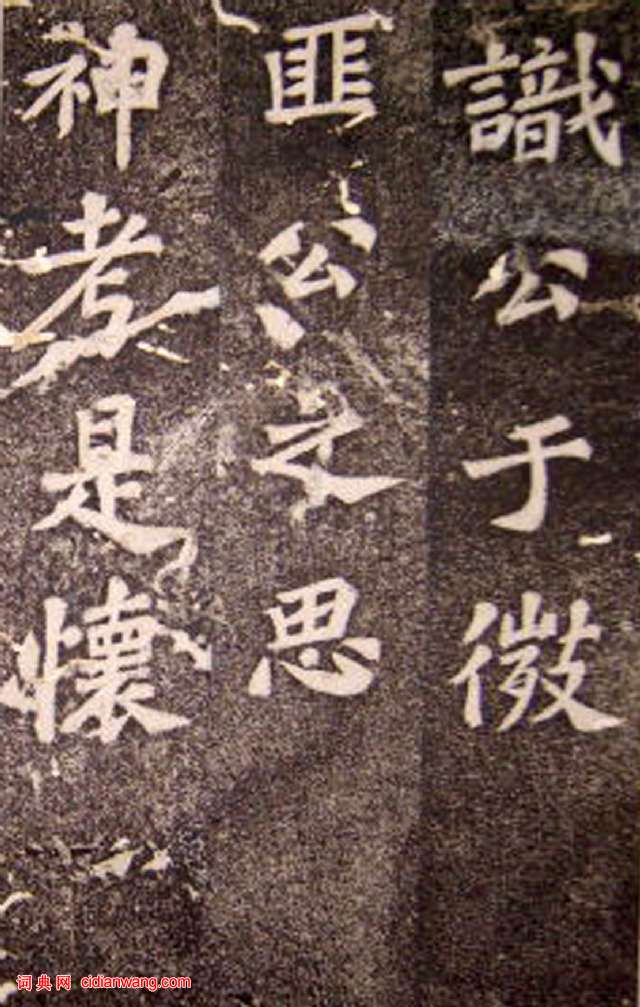 識公于微
匪公之思
神考是懷
词典网 cidianwang.com